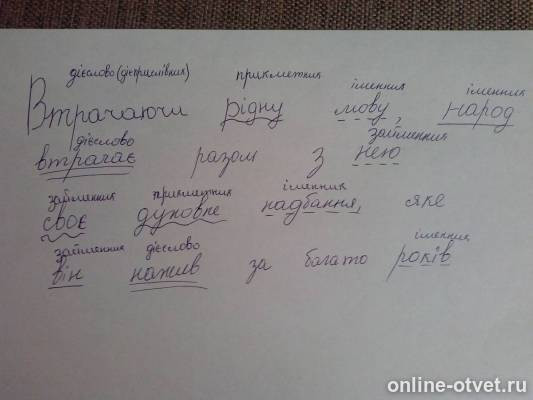 дієслово (дієприслівник) прикметник іменник іменник
Втрачаючи рідну мову, народ
дієслово займенник
втрачає разом з нею
займенник прикметник іменник
своє духовне надбання, яке
займенник дієслово іменник
він нажив за багато років
online-otvet.ru